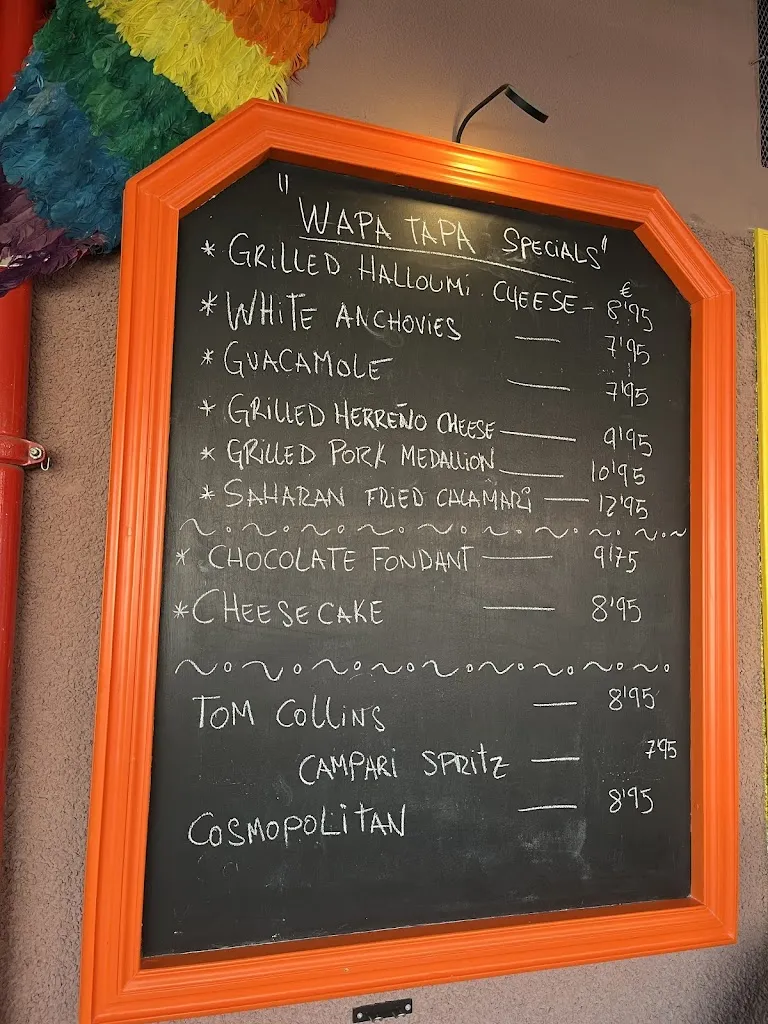 "WAPA TAPA SPECIALS"
€
* GRILLED HALLOUMI CHEESE - 8'95
* WHITE ANCHOVIES — 7'95
* GUACAMOLE — 7'95
* GRILLED HERREÑO CHEESE — 9'95
* GRILLED PORK MEDALLION — 10'95
* SAHARAN FRIED CALAMARI — 12'95
* CHOCOLATE FONDANT — 9'75
* CHEESECAKE — 8'95
TOM COLLINS — 8'95
CAMPARI SPRITZ — 7'95
COSMOPOLITAN — 8'95